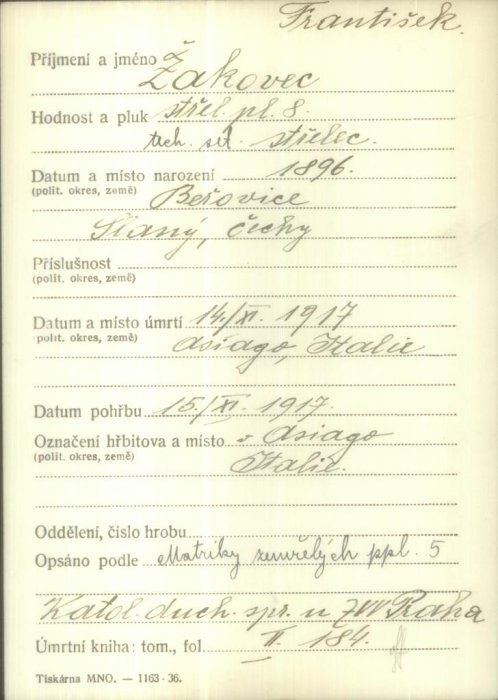 František.
Příjmení a jméno Žakovec
Hodnost a pluk střel. pl. 8.
tech. set. střelec.
Datum a místo narození 1896.
(polit. okres, země) Beřovice
Slaný, Čechy
Příslušnost
(polit. okres, země)
Datum a místo úmrtí 14./XI. 1917
(polit. okres, země) Asiago, Italie
Datum pohřbu 15./XI. 1917.
Označení hřbitova a místo v Asiago
(polit. okres, země) Italie.
Oddělení, číslo hrobu
Opsáno podle Matriky zemřelých ppl. 5
Katol. duch. spr. u ZVV Praha
Úmrtní kniha: tom., fol. II. 184.
Tiskárna MNO. — 1163-36.